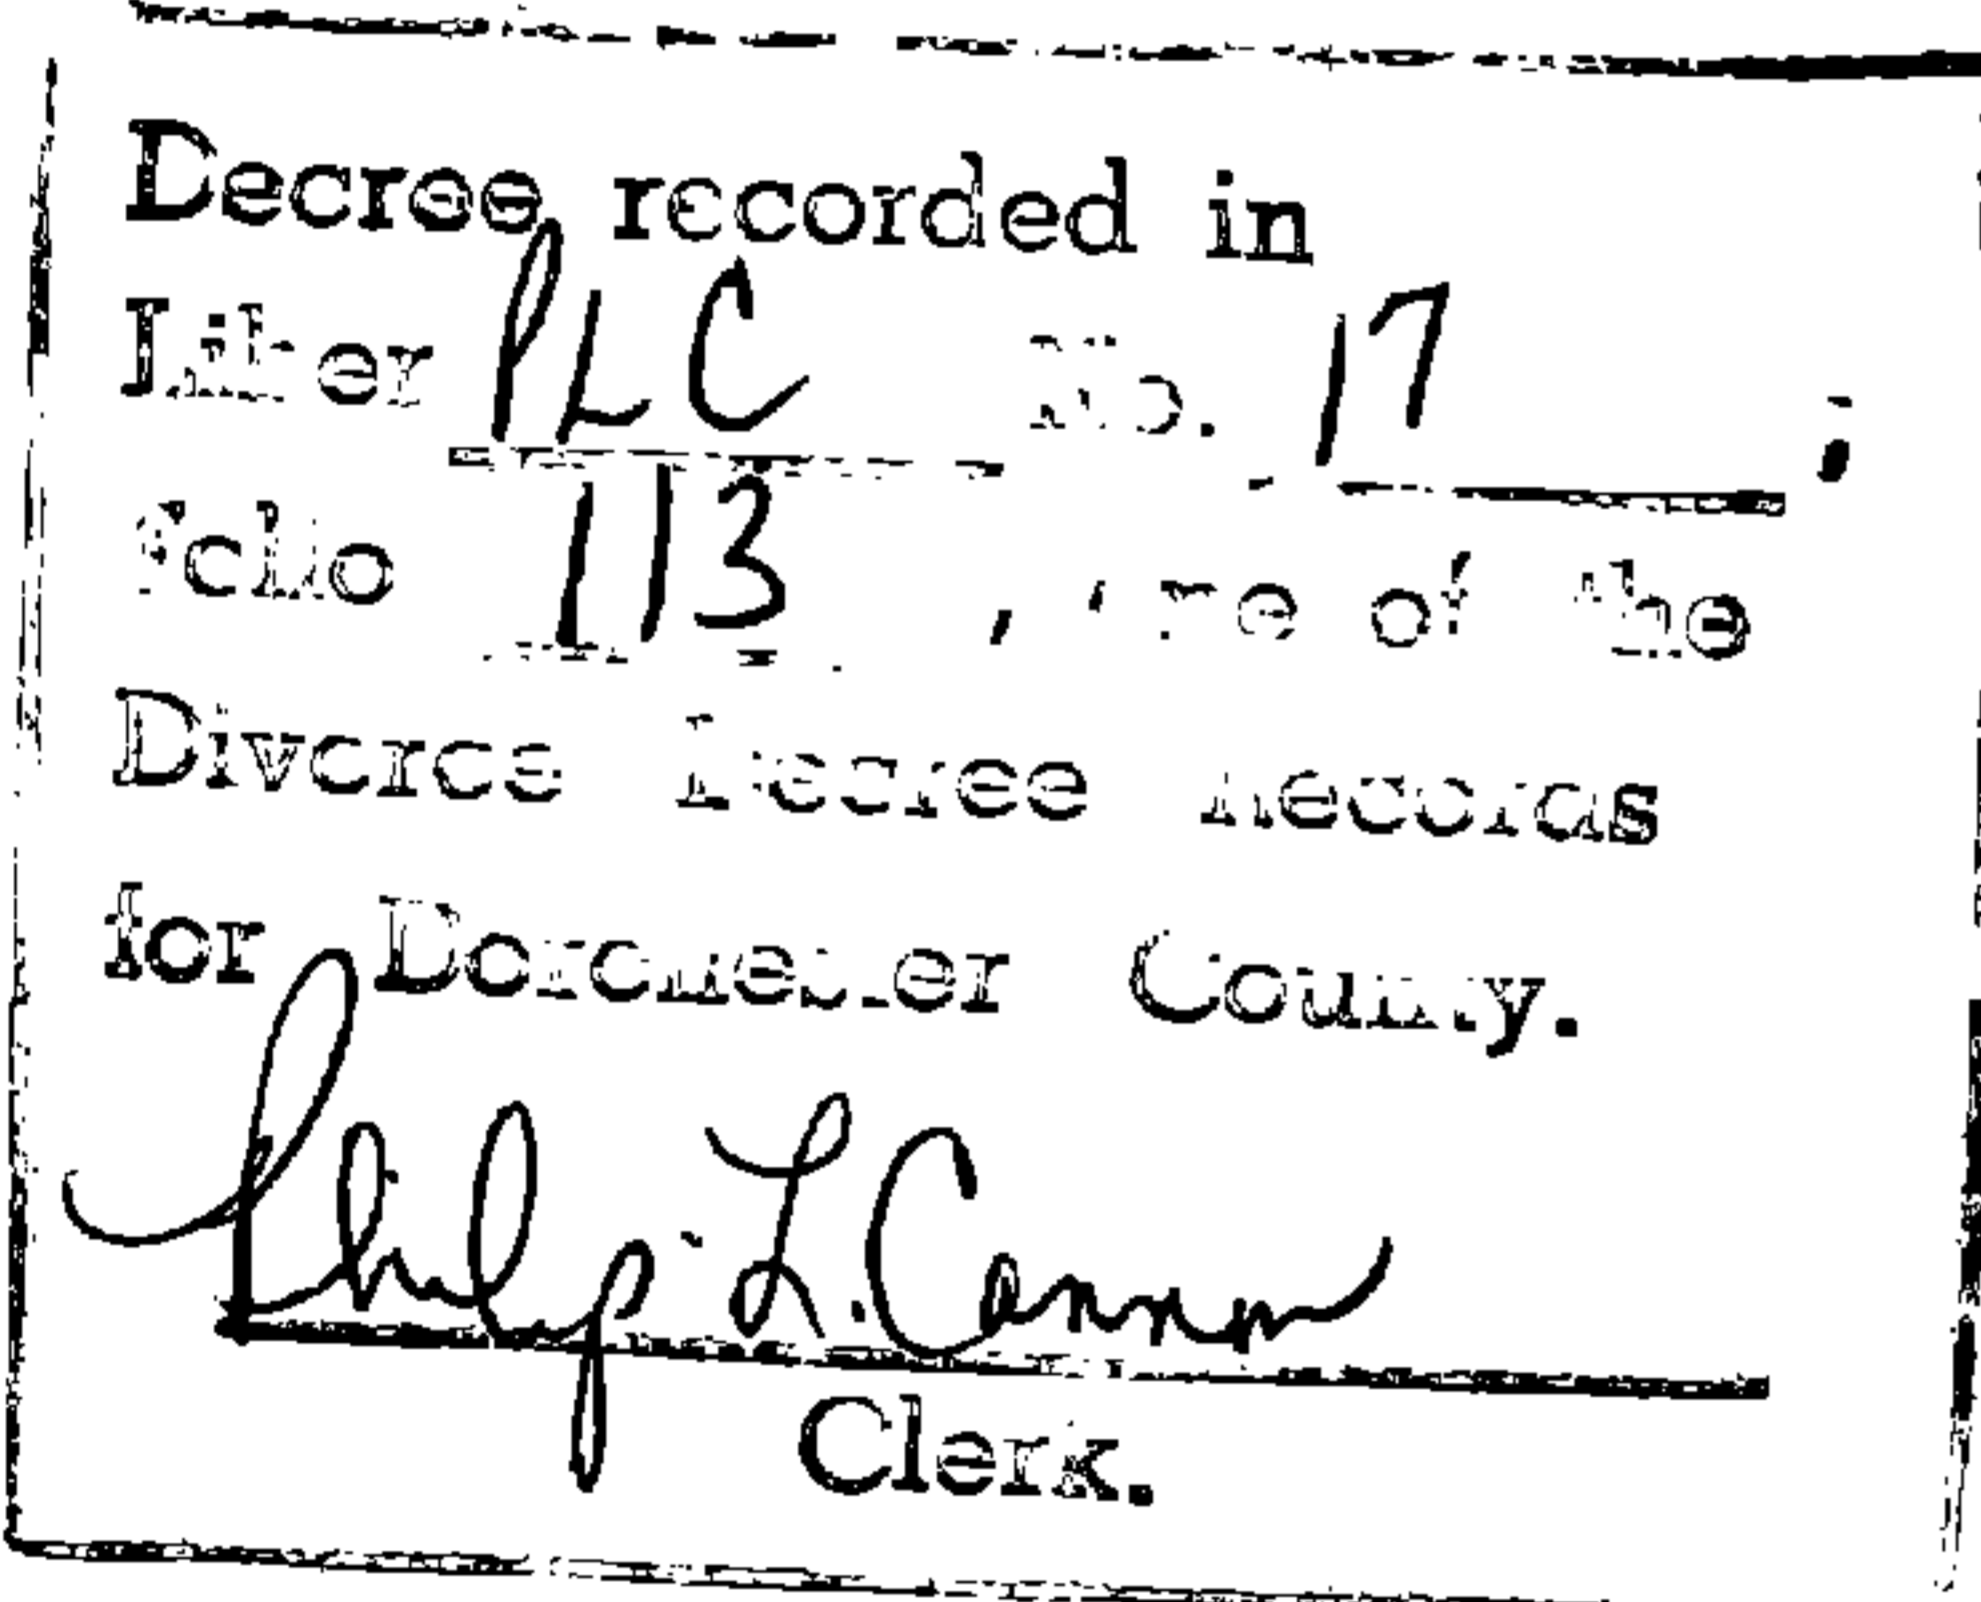 Decree recorded in
Liber PLC No. 17 ;
folio 113 , one of the
Divorce Decree Records
for Dorchester County.
Philip L. Cannon
Clerk.